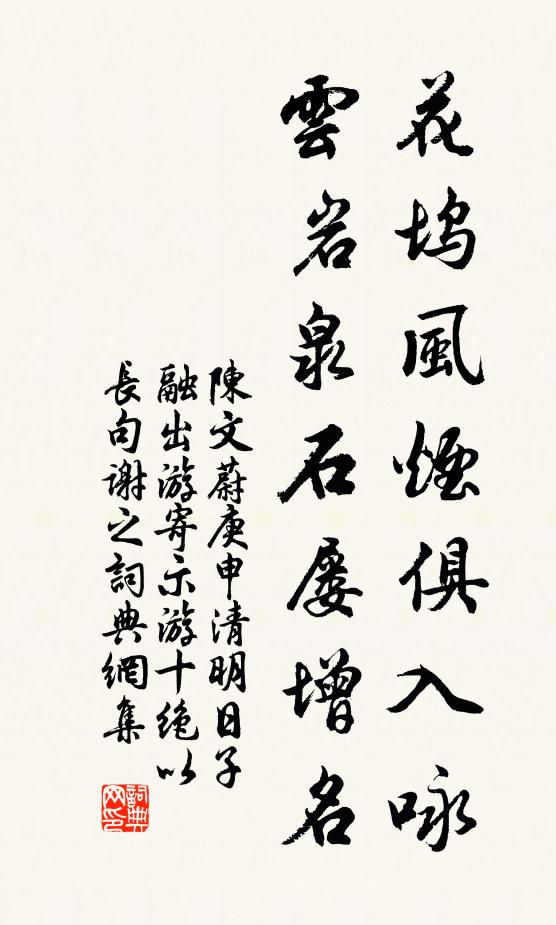 花塢風煙俱入咏
雲岩泉石屡增名
陳文蔚庚申清明日子
融出游寄示游十绝以
長句謝之詞典網集
詞典网印